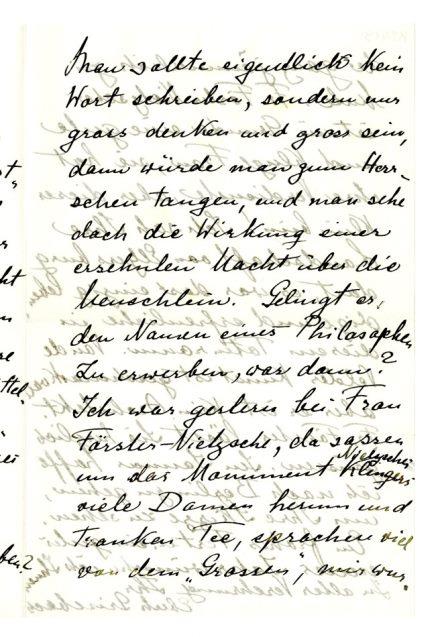 Man sollte eigentlich kein
Wort schreiben, sondern nur
gross denken und gross sein,
dann würde man zum Herr-
schen taugen, und man sehe
doch die Wirkung einer
ersehnten Macht über die
Menschlein. Gelingt es,
den Namen eines Philosophen
zu erwerben, was dann?
Ich war gestern bei Frau
Förster-Nietzsche, da sassen
um das Monument Nietzsches Klingers
viele Damen herum und
tranken Tee, sprachen viel
von dem „Grossen", mir wur-